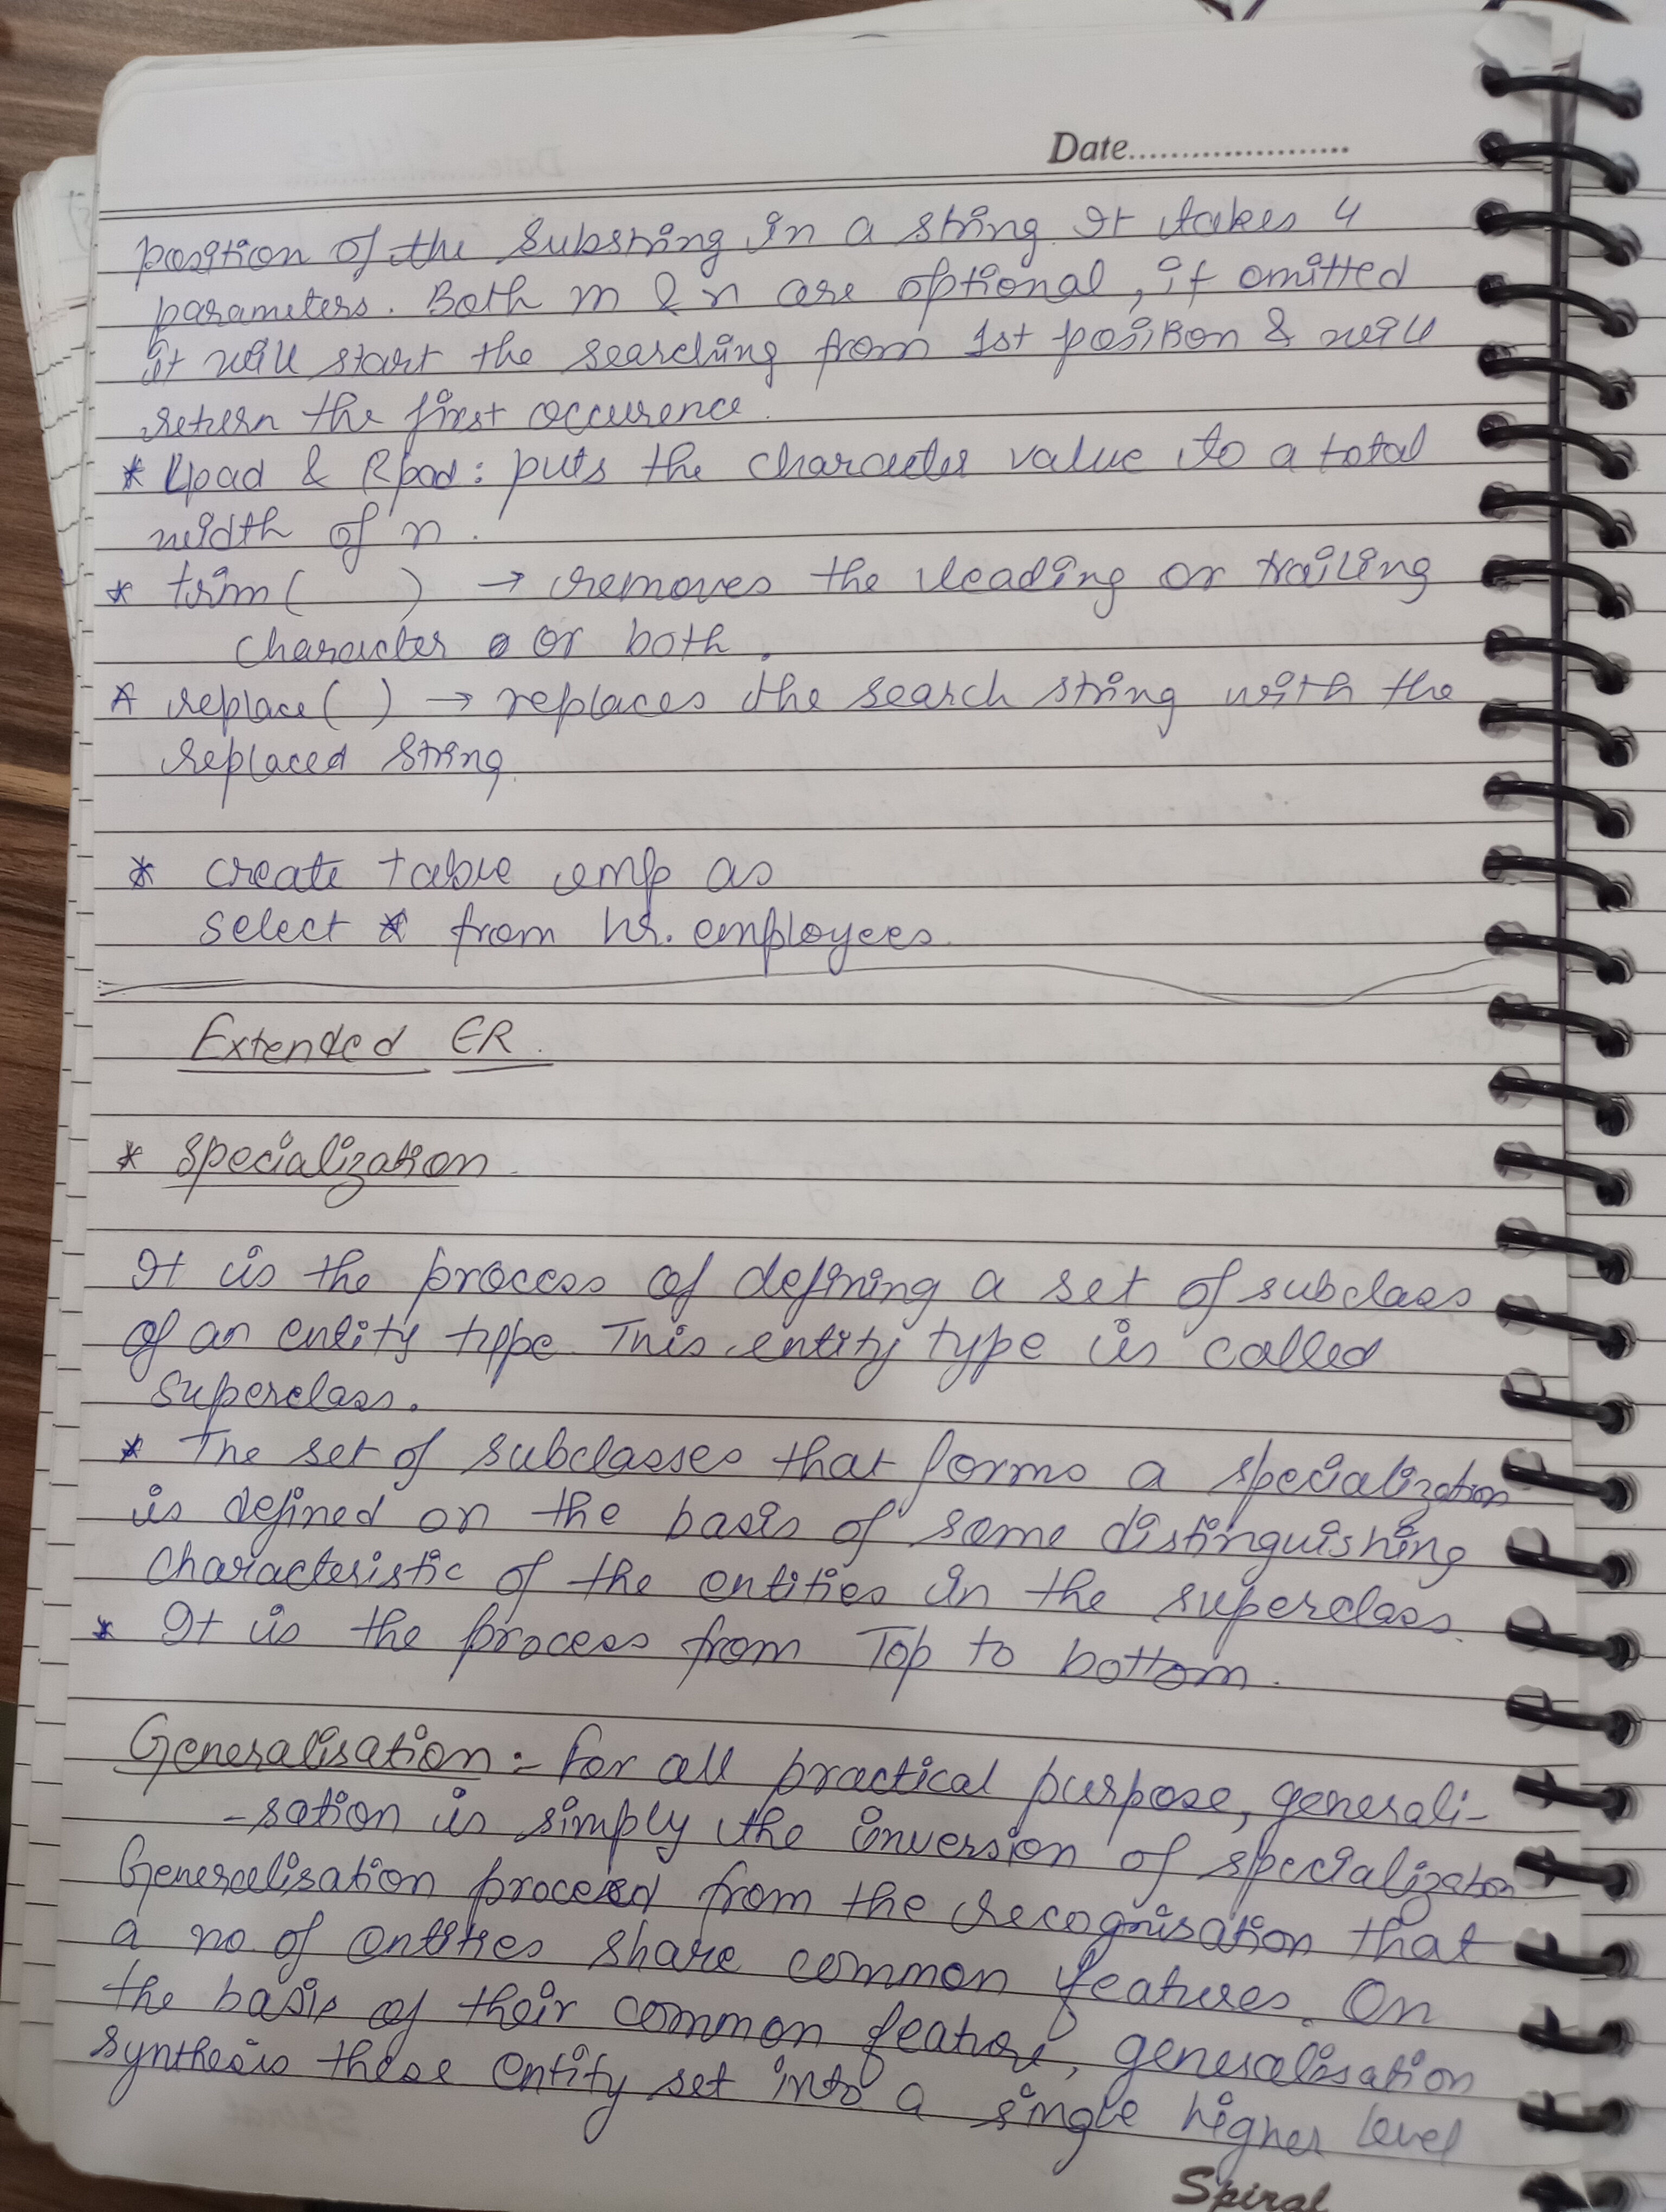 Date.....................
position of the substring in a string. It takes 4
parameters. Both m & n are optional, if omitted
it will start the searching from 1st position & will
return the first occurence.
* Lpad & Rpad: puts the character value to a total
width of n.
* trim( ) → removes the leading or trailing
character or both.
* replace( ) → replaces the search string with the
replaced string.
* create table emp as
select * from hr. employees.
Extended ER.
* specialization
It is the process of defining a set of subclass
of an entity type. This entity type is called
superclass.
* The set of subclasses that forms a specialization
is defined on the basis of some distinguishing
characteristic of the entities in the superclass.
* It is the process from Top to bottom.
Generalisation :- For all practical purpose, generali-
-sation is simply the inversion of specialization
Generalisation proceed from the recognisation that
a no. of entities share common features. On
the basis of their common feature, generalisation
synthesis these entity set into a single higher level
Spiral